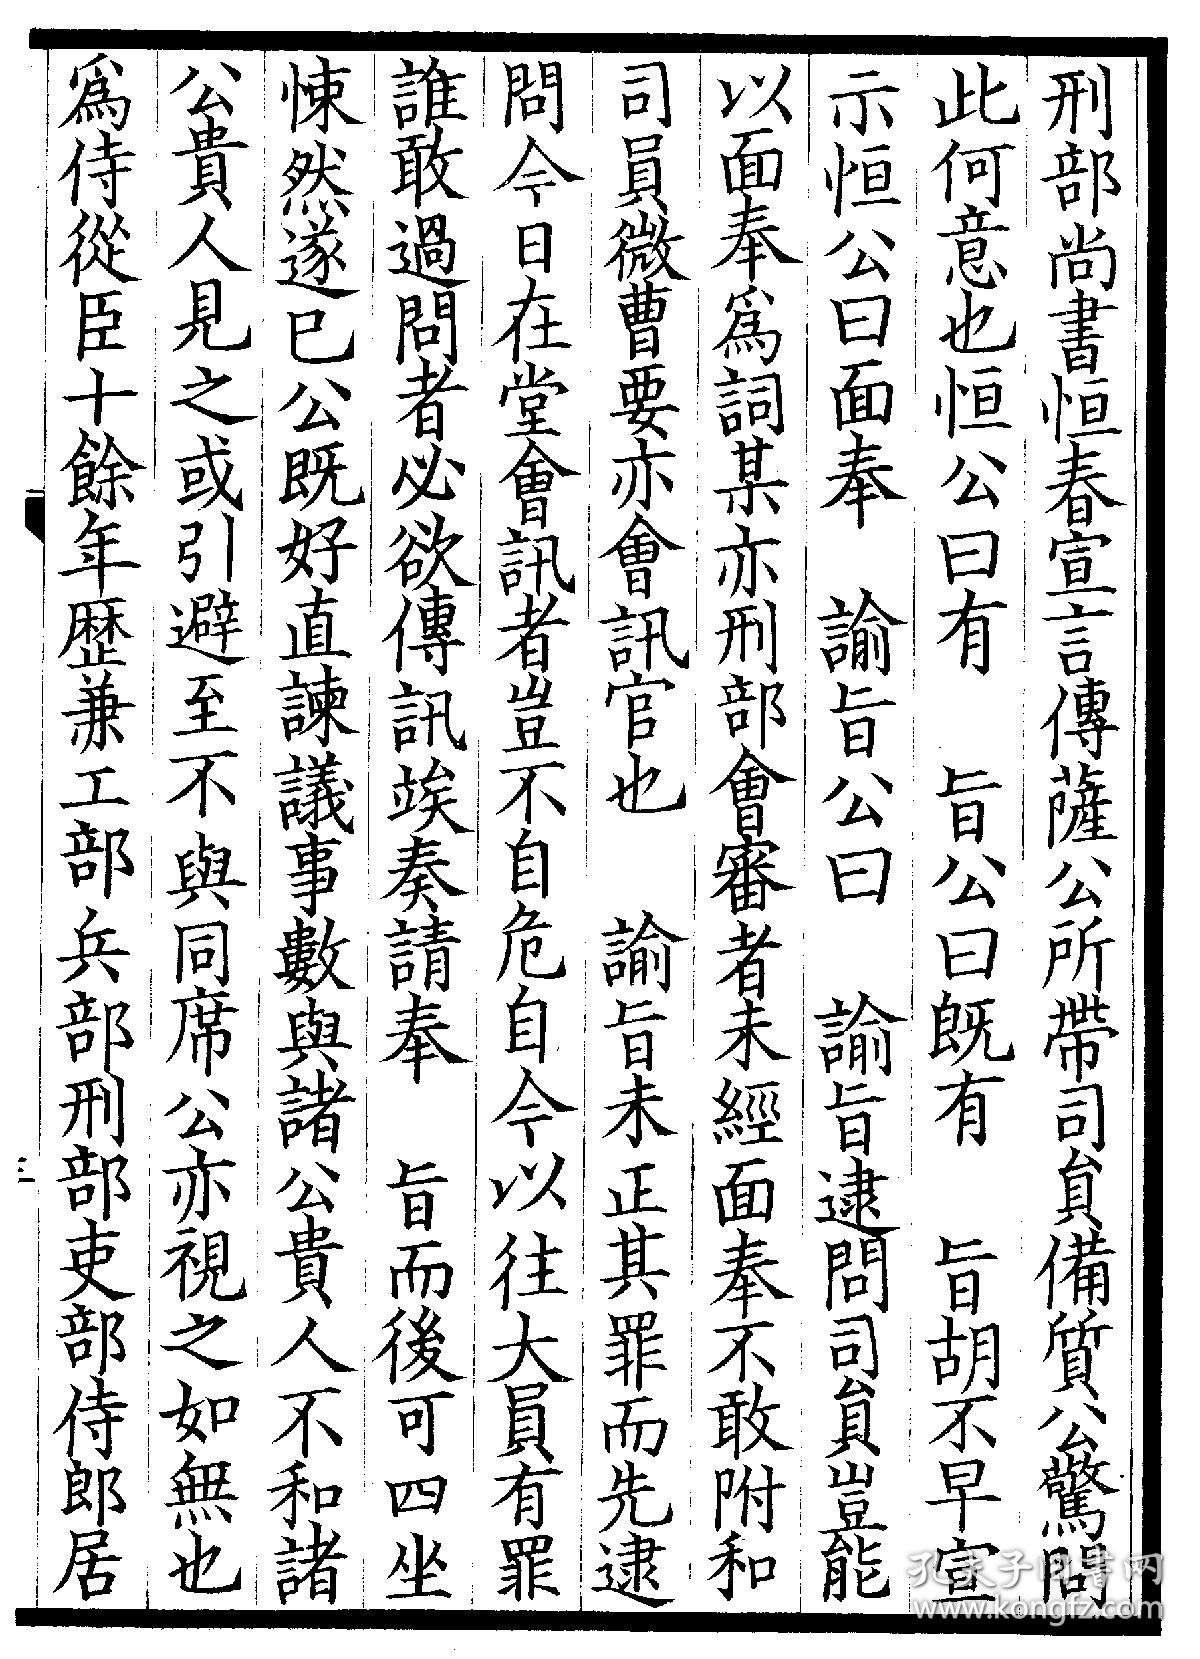 刑部尚書恒春宣言傳薩公所帶司員備質公驚問
此何意也恒公曰有　旨公曰既有　旨胡不早宣
示恒公曰面奉　諭旨公曰　諭旨逮問司員豈能
以面奉爲詞某亦刑部會審者未經面奉不敢附和
司員微曹要亦會訊官也　諭旨未正其罪而先逮
問今日在堂會訊者豈不自危自今以往大員有罪
誰敢過問者必欲傳訊竢奏請奉　旨而後可四坐
悚然遂已公既好直諫議事數與諸公貴人不和諸
公貴人見之或引避至不與同席公亦視之如無也
爲侍從臣十餘年歷兼工部兵部刑部吏部侍郎居
三
孔夫子旧书网
www.kongfz.com